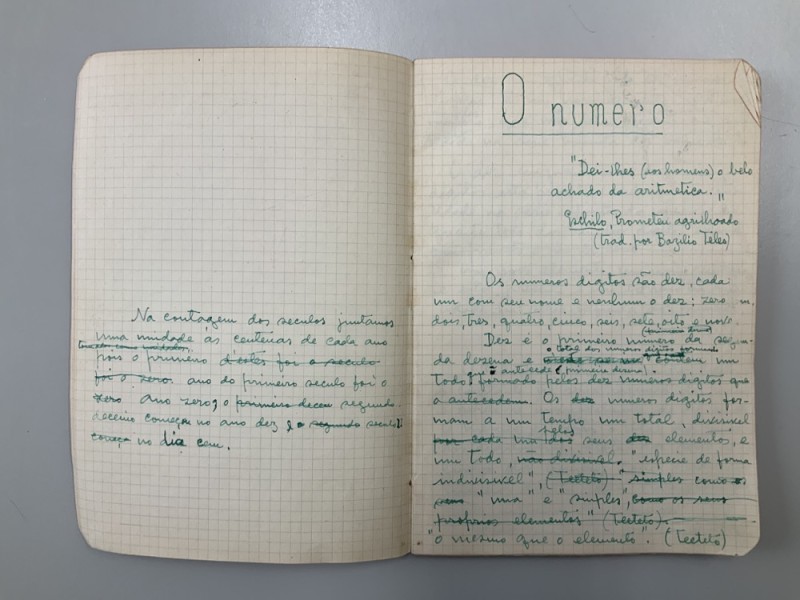 Na contagem dos seculos juntamos
uma unidade ás centenas de cada ano
pois o primeiro d'estes foi o seculo
foi o zero. ano do primeiro seculo foi o
zero Ano zero, o primeiro decen segundo
decenio começou no ano dez, e o segundo seculo
começa no dia cem.
O numero
"Dei-lhes (aos homens) o belo
achado da aritmetica."
Eschilo, Prometeu agrilhoado
(trad. por Bazilio Téles)
Os numeros digitos são dez, cada
um com seu nome e nenhum o dez: zero, um,
dois, tres, quatro, cinco, seis, sete, oito e nove.
Dez é o primeiro numero da segun-
da dezena e contem um
que antecede a primeira dezena.
Todo, formado pelos dez numeros digitos que
o antecedem. Os dez numeros digitos for-
mam a um tempo um total, divisivel
pelos
por cada um dos seus dez elementos, e
um todo, não divisivel. "especie de forma
indivisivel", (Teeteto) "simples como os
seus "una" e "simples", como os seus
proprios elementos" (Teeteto).
"o mesmo que o elemento". (Teeteto)